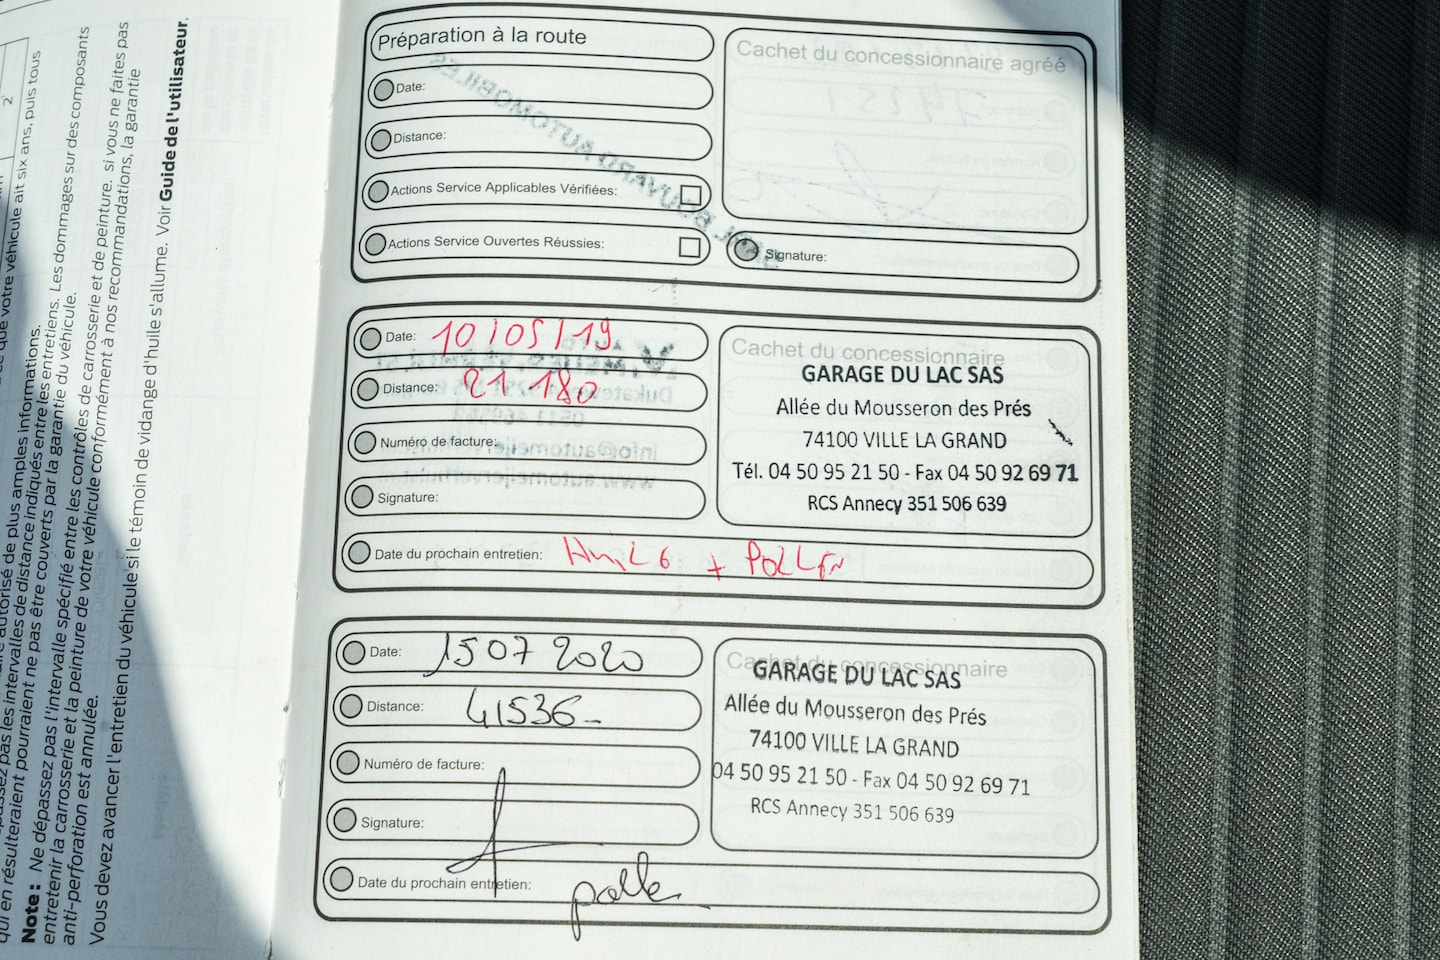 2
qui en résulteraient pourraient ne pas être couverts par la garantie du véhicule.
Note : Ne dépassez pas l'intervalle spécifié entre les contrôles de carrosserie et de peinture. si vous ne faites pas
entretenir la carrosserie et la peinture de votre véhicule conformément à nos recommandations, la garantie
anti-perforation est annulée.
Vous devez avancer l'entretien du véhicule si le témoin de vidange d'huile s'allume. Voir Guide de l'utilisateur.
Préparation à la route
Date:
Distance:
Actions Service Applicables Vérifiées:
Actions Service Ouvertes Réussies:
Cachet du concessionnaire agréé
Signature:
Date: 10/05/19
Distance: 21 180
Numéro de facture:
Signature:
Date du prochain entretien: HuiLe + PoLLen
Cachet du concessionnaire
GARAGE DU LAC SAS
Allée du Mousseron des Prés
74100 VILLE LA GRAND
Tél. 04 50 95 21 50 - Fax 04 50 92 69 71
RCS Annecy 351 506 639
Date: 15 07 2020
Distance: 41536-
Numéro de facture:
Signature:
Date du prochain entretien:
Cachet du concessionnaire
GARAGE DU LAC SAS
Allée du Mousseron des Prés
74100 VILLE LA GRAND
04 50 95 21 50 - Fax 04 50 92 69 71
RCS Annecy 351 506 639